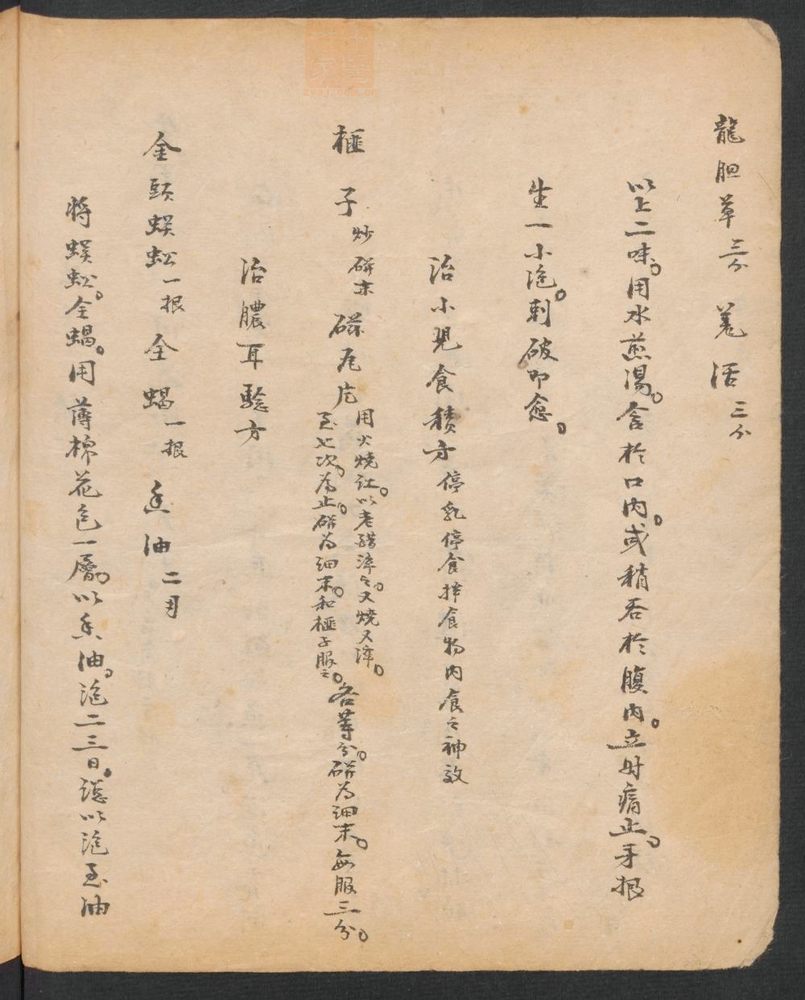 龍胆草三分 羌活三分
以上二味。用水煎湯。含於口内。或稍吞於腹内。立时痛止。牙根
生一小泡。刺破即愈。
治小兒食積方 停乳停食拌食物内食之神效
榧子 炒研末 磁瓦片 用火燒红。以老醋淬之。又燒又淬。至七次。為止。研為细末。和榧子服之。各等分。研為细末。每服三分。
治膿耳驗方
金頭蜈蚣一根 全蝎一根 香油二両
將蜈蚣。全蝎。用薄棉花包一層。以香油。泡二三日。總以泡至油